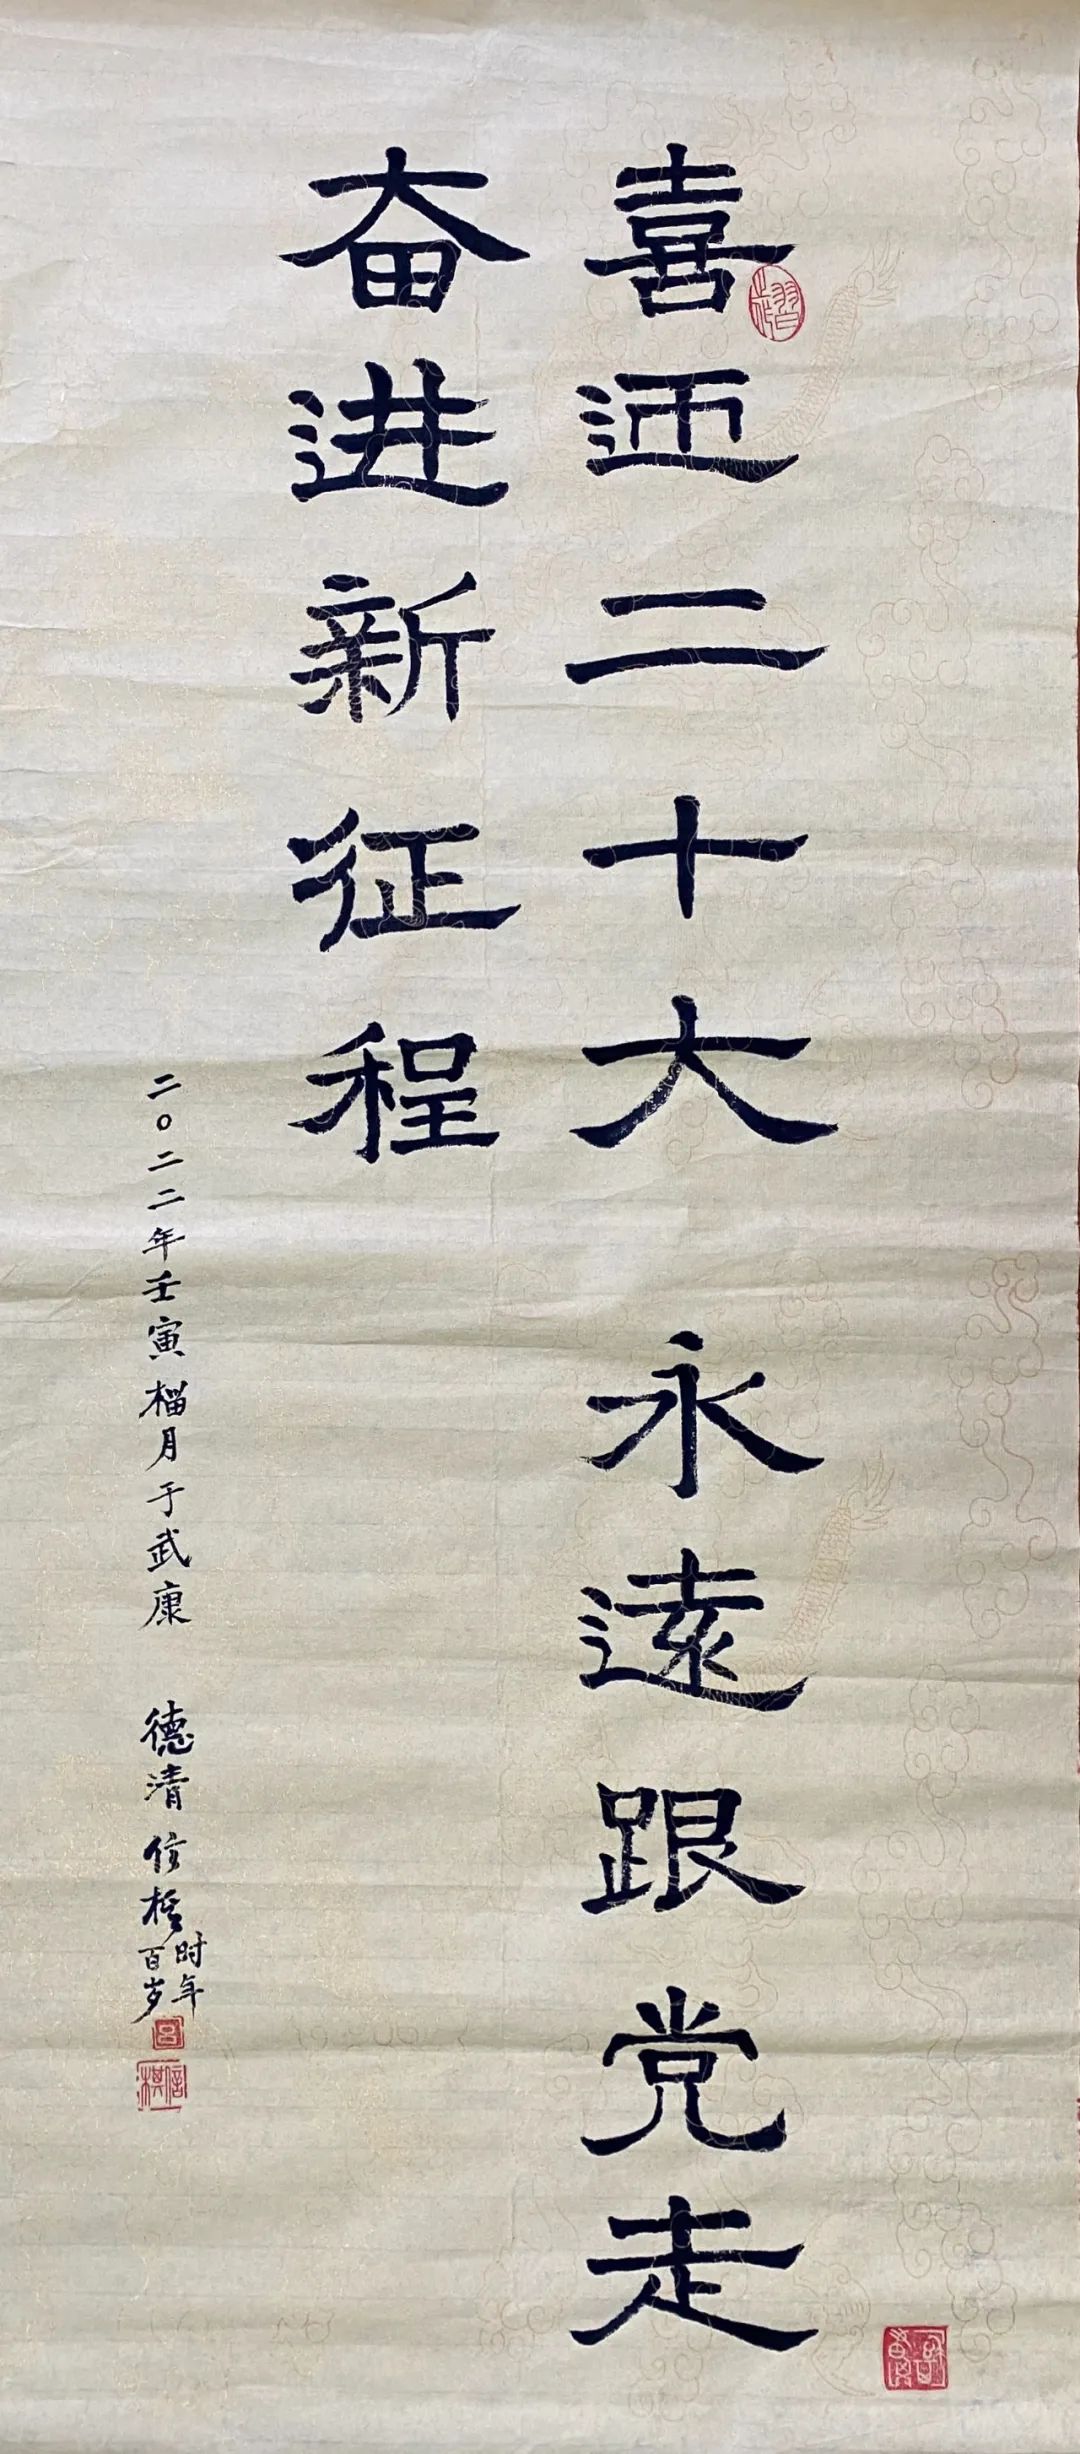 喜迎二十大 永遠跟党走
奋进新征程
二〇二二年壬寅榴月于武康 德清信棋时年百岁
吕
信棋